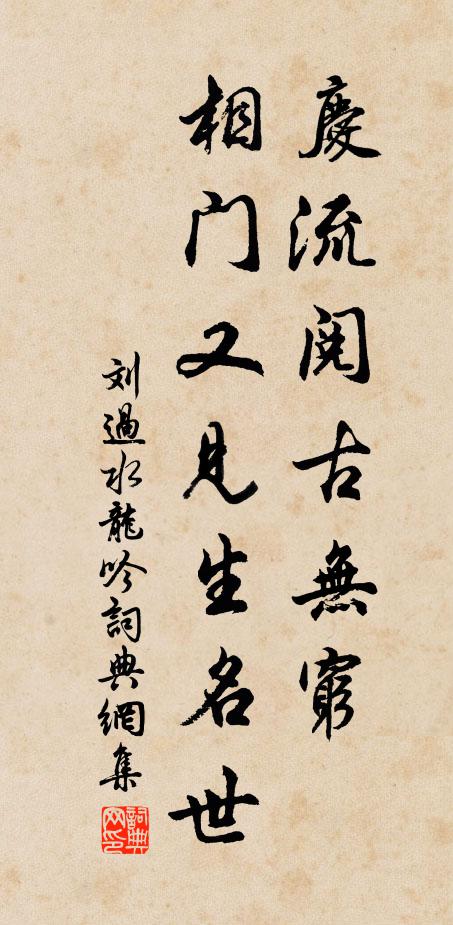 慶流閱古無窮
相门又見生名世
刘過水龍吟詞典網集
詞典网印